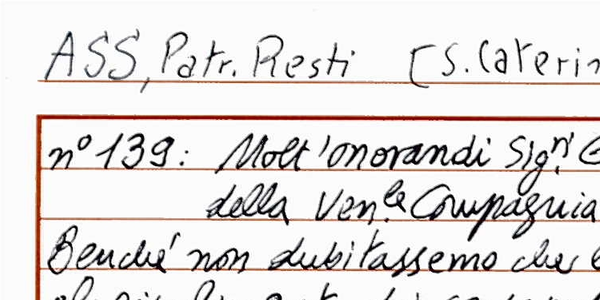 ASS, Patr. Resti [S. Caterin
n° 139: Molt'onorandi Sig.ri
della Ven.le Compagnia
Benché non dubitassemo che